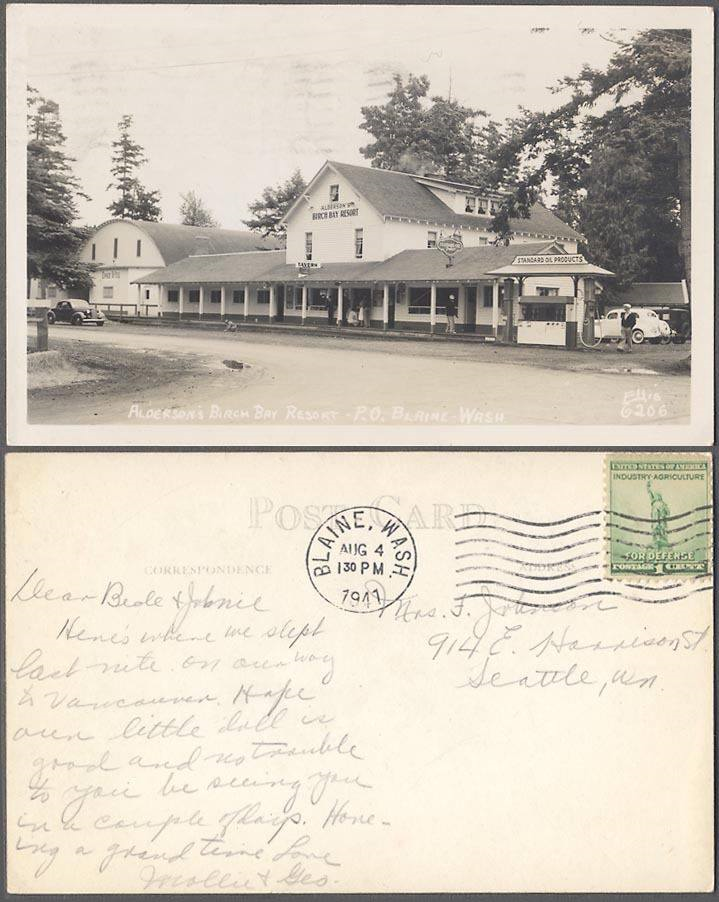 ALDERSON'S
BIRCH BAY RESORT
TAVERN
STANDARD OIL PRODUCTS
ALDERSON'S BIRCH BAY RESORT - P.O. BLAINE - WASH
Ellis
6206
POST CARD
CORRESPONDENCE
ADDRESS
BLAINE, WASH.
AUG 4
1 30 PM
1941
UNITED STATES OF AMERICA
INDUSTRY-AGRICULTURE
FOR DEFENSE
POSTAGE 1 CENT
Dear Bede & Johnie
Here's where we slept
last nite on our way
to Vancouver. Hope
our little doll is
good and no trouble
to you be seeing you
in a couple of days. Have-
ing a grand time Love
Mollie & Geo.
Mrs. F. Johnson
914 E. Harrison St.
Seattle, Wn